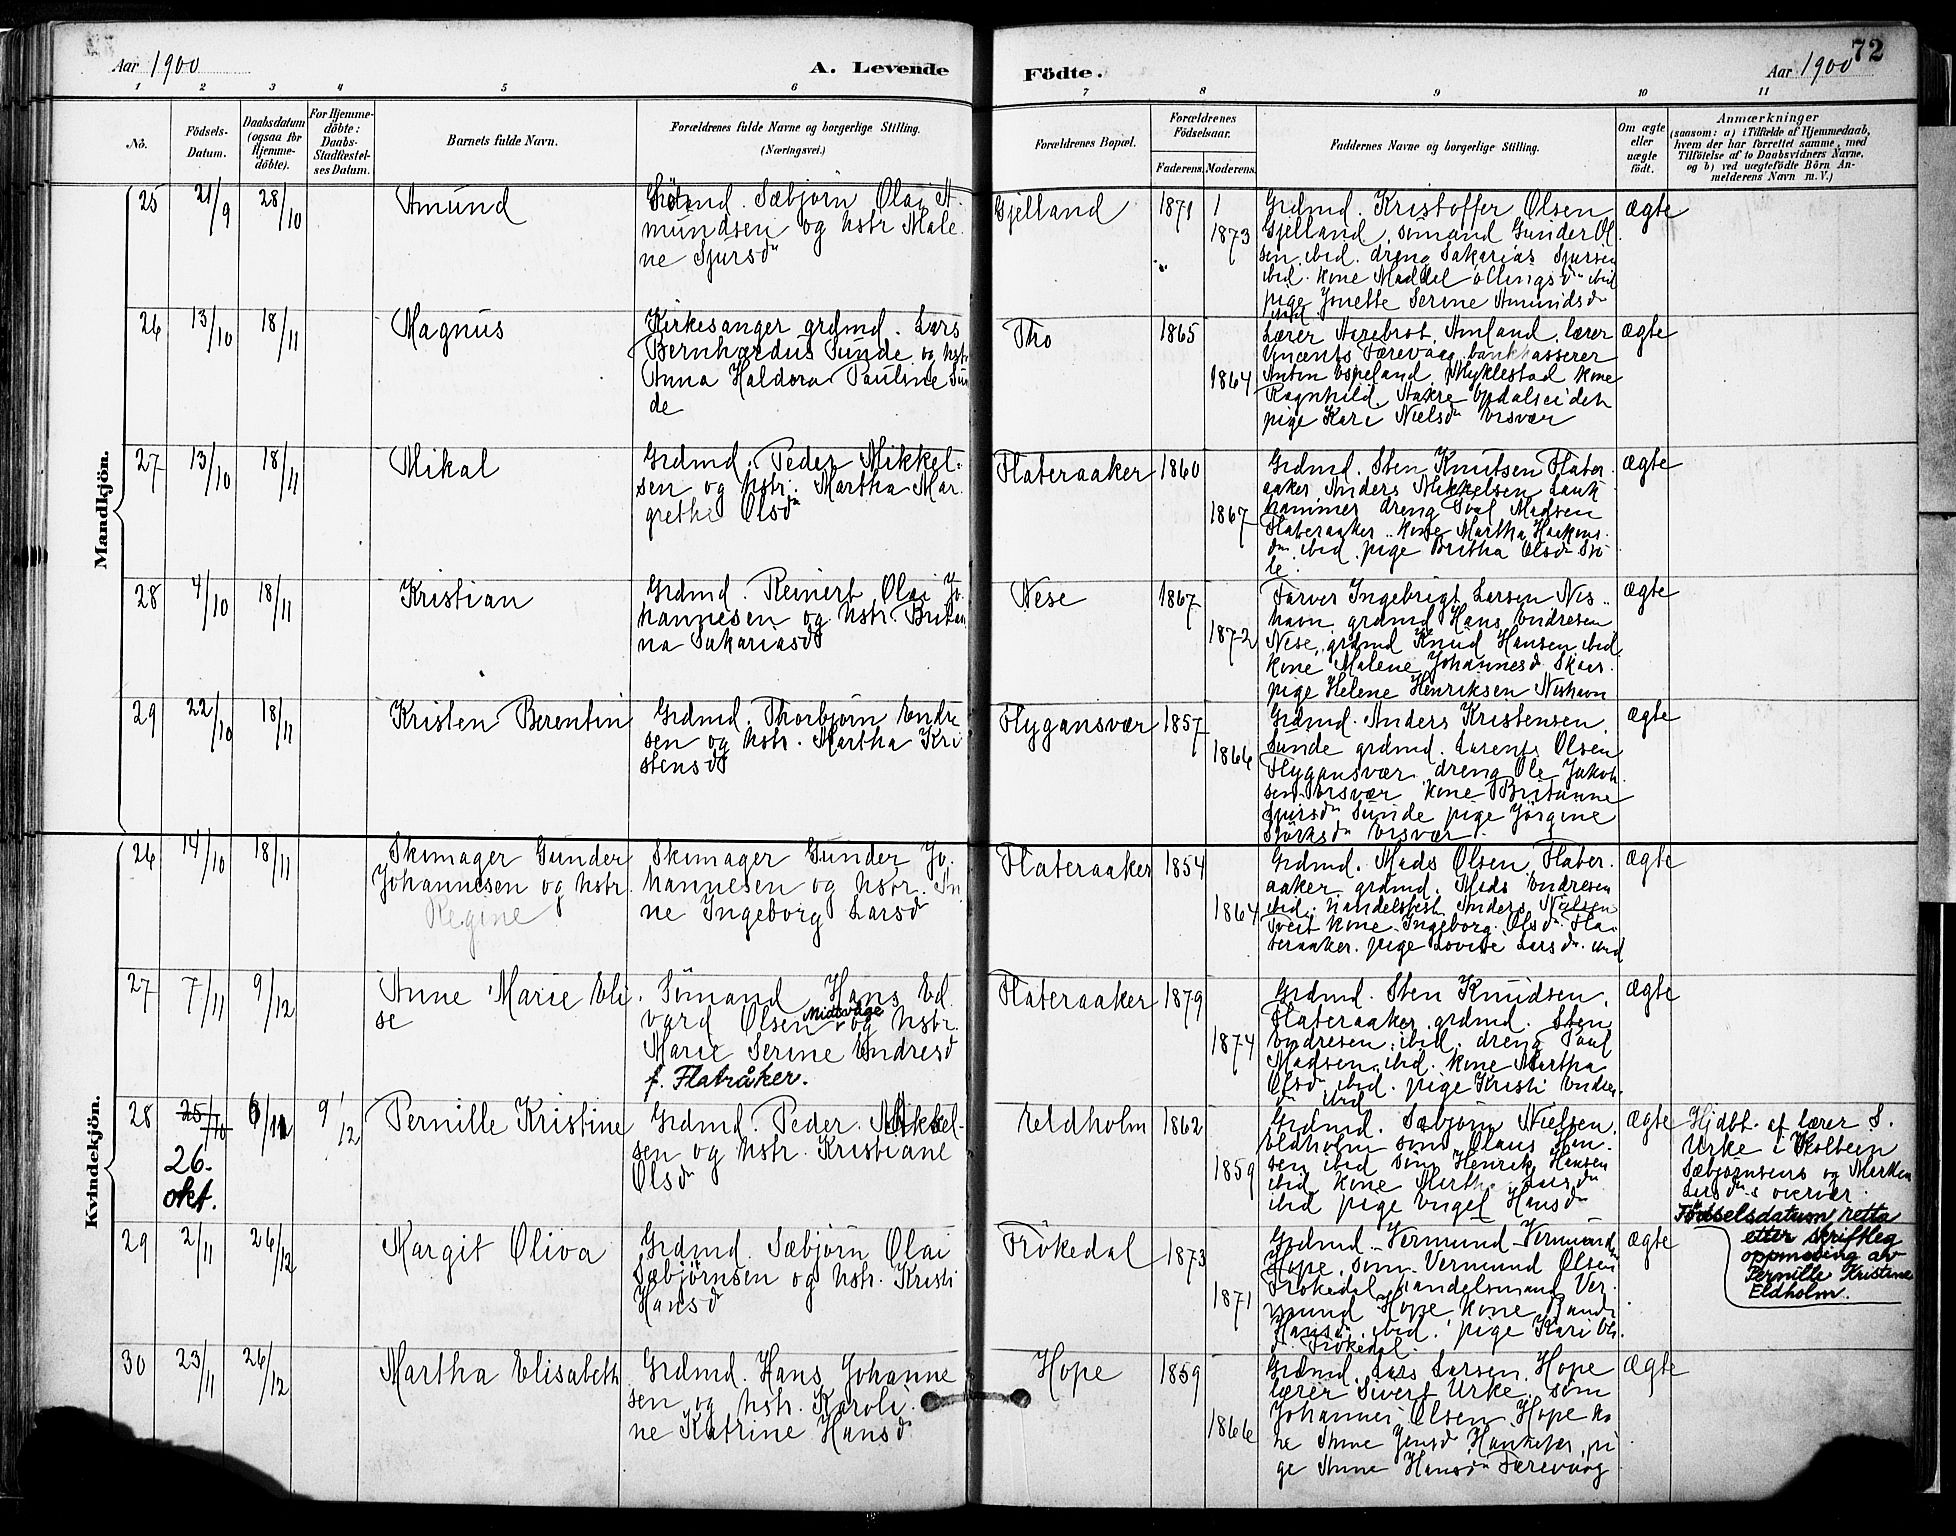 Aar 1900
A. Levende
Födte.
Aar 1900
72
1 2 3 4 5 6 7 8 9 10 11
No.
Födsels-
Datum.
Daabsdatum
(ogsaa for
Hjemme-
döbte).
For Hjemme-
döbte:
Daabs-
Stadfæstel-
ses Datum.
Barnets fulde Navn.
Forældrenes fulde Navne og borgerlige Stilling.
(Næringsvei.)
Forældrenes Bopæl.
Forældrenes
Födselsaar.
Faderens. Moderens.
Faddernes Navne og borgerlige Stilling.
Om ægte
eller
uægte
födt.
Anmærkninger
(saasom: a) i Tilfælde af Hjemmedaab,
hvem der har forrettet samme, med
Tilföielse af to Daabsvidners Navne,
og b) ved uægtefödte Börn An-
melderens Navn m. V.)
Mandkjön.
25 21/9 28/10 Amund
Sæbjörn Olai A.
mundsen og hstr Male
ne Sjursd
Gjelland 1871
1873
Grdmd. Kristoffer Olsen
Gjelland, sömand Gunder Ol
sen ibid. dreng Sakarias Sjursen
ibid. kone ibid
pige Jonette Serine Amundsd
ibid
ægte
26 13/10 18/11 Magnus
Kirkesanger grdmd. Lars
Bernhardus Sunde og hstr
Anna Haldora Pauline Sun
de
Tho 1865
1864
Lærer Aarebrot, Amland, lærer
Færevaag bankkasserer
Anton Espeland, Myklestad kone
Ragnhild Aakre Opdalseidet
pige Kari Nielsd
ægte
27 13/10 18/11 Mikal
Grdmd. Peder Mikkel-
sen og hstr. Martha Mar
grethe Olsd
Flateraaker 1860
1867
Grdmd. Sten Knutsen Flater
aaker Anders Mikkelsen Lauk
hammer dreng Paul Madsen
Flateraaker kone Martha Haakons
d ibid. pige Britha Olsd Stö
le.
ægte
28 4/10 18/11 Kristian
Grdmd. Reinert Olai Jo
hannesen og hstr. Britan
na Sakariasd
Nese 1867
1872
Farver Ingebrigt Larsen Nes
havn grdmd Hans Endresen
Nese, grdmd Knud Hansen ibid
kone Malene Johannesd Skaar
pige Helene Henriksen Neshavn
ægte
29 22/10 18/11 Kristen Berentin
Grdmd. Thorbjörn Endre
sen og hstr. Martha Kri
stensd
Flygansvær 1857
1866
Grdmd. Anders Kristensen
Sunde grdmd. Larents Olsen
Flygansvær dreng Ole Jakob
sen kone Britanne
Sjursd Sunde pige Jörgine
ægte
Kvindekjön.
26 14/10 18/11 Skomager Gunder
Johannesen og hstr.
Regine
Skomager Gunder Jo.
hannesen og hstr. An
ne Ingeborg Larsd
Flateraaker 1854
1864
Grdmd. Mads Olsen Flater
aaker grdmd. Mads Endresen
ibid. handelsbest. Anders Nielsen
Tveit kone Ingeborg Olsd Fla
teraaker. pige Lovise Larsd ibid
ægte
27 7/11 9/12 Anne Marie Eli
se
Sömand Hans Ed.
vard Olsen Midtvåge og hstr.
Marie Serine Endresd
f. Flatråker.
Flateraaker 1879
1874
Grdmd. Sten Knudsen
Flateraaker grdmd. Sten
Endresen ibid. dreng Paul
Madsen ibid. kone Martha
Olsd ibid. pige Kristi Endres
d ibid
ægte
28 25/10 6/12 9/12 Pernille Kristine
26.
okt.
Grdmd. Peder Mikkel-
sen og hstr. Kristiane
Olsd
Eldholm 1862
1859
Grdmd. Sæbjörn Nielsen
Eldholm söm. Olaus Han
sen ibid söm. Henrik Hansen
ibid kone Martha Larsd
ibid pige Engel Hansd
ægte
Hjdbt. af lærer S.
Urke i Kolbein
Sæbjörnsens og Merken
Larsd s overvær
Fødselsdatum retta
etter skriftleg
oppmoding av
Pernille Kristine
Eldholm.
29 2/11 26/12 Margit Oliva
Grdmd. Sæbjörn Olai
Sæbjörnsen og hstr. Kristi
Hansd
Frökedal 1873
1871
Grdmd. Vermund Vermund
Hope, söm. Vermund Olsen
Frökedal handelsmand Ver.
mund Hope, kone Randi
Hansd ibid. pige Kari Ols
d Frökedal.
ægte
30 23/11 26/12 Martha Elisabeth
Grdmd. Hans Johanne
sen og hstr. Karoli
ne Katrine Hansd
Hope 1859
1866
Grdmd. Lars Larsen Hope
lærer Sivert Urke, söm
Johannes Olsen Hope ko
ne Anne Jensd pi
ge Anne Hansd Færevaag
ægte